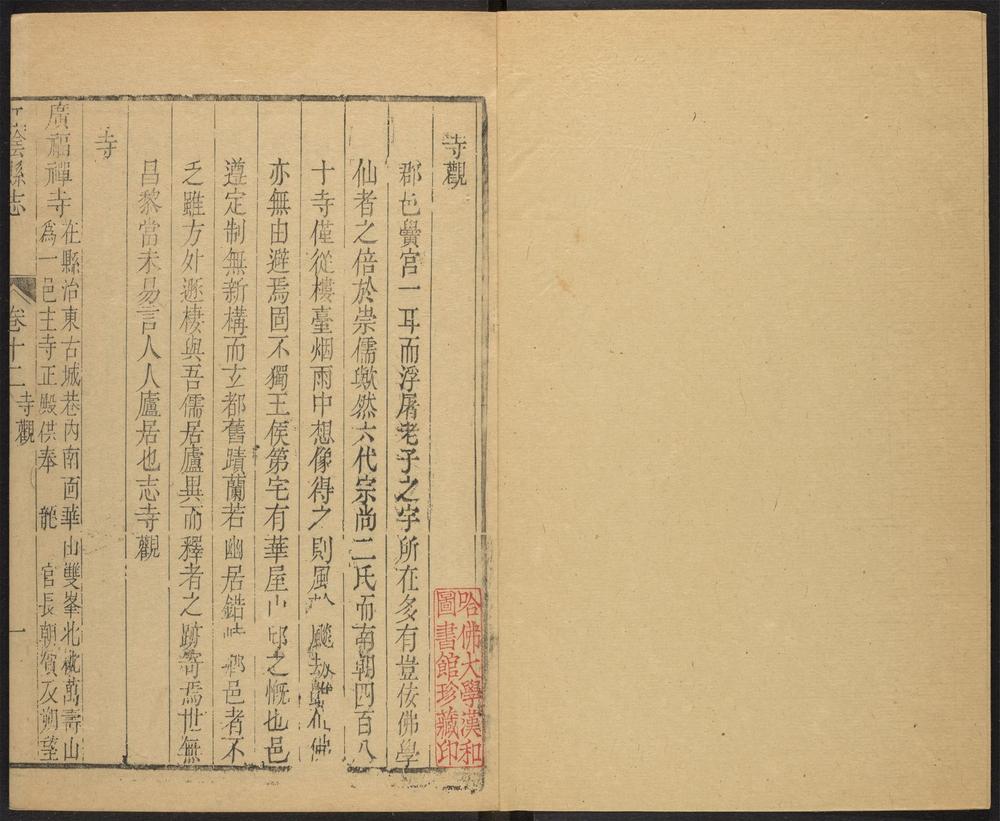 寺觀
郡邑黌宮一耳而浮屠老子之宇所在多有豈佞佛學
仙者之倍於崇儒歟然六代宗尚二氏而南朝四百八
十寺僅從樓臺烟雨中想像得之則風颷劫佛
亦無由避焉固不獨王侯第宅有華屋山邱之慨也邑
遵定制無新構而玄都舊蹟蘭若幽居錯邑者不
乏雖方外遯棲與吾儒居廬異而釋者之跡寄焉世無
昌黎當未易言人人廬居也志寺觀
寺
廣福禪寺 在縣治東古城巷內南面華山雙峯北枕萬壽山
為一邑主寺正殿供奉 龍 官長朝賀及朔望
陰縣志 卷十二 寺觀 一
哈佛大學漢和
圖書館珍藏印